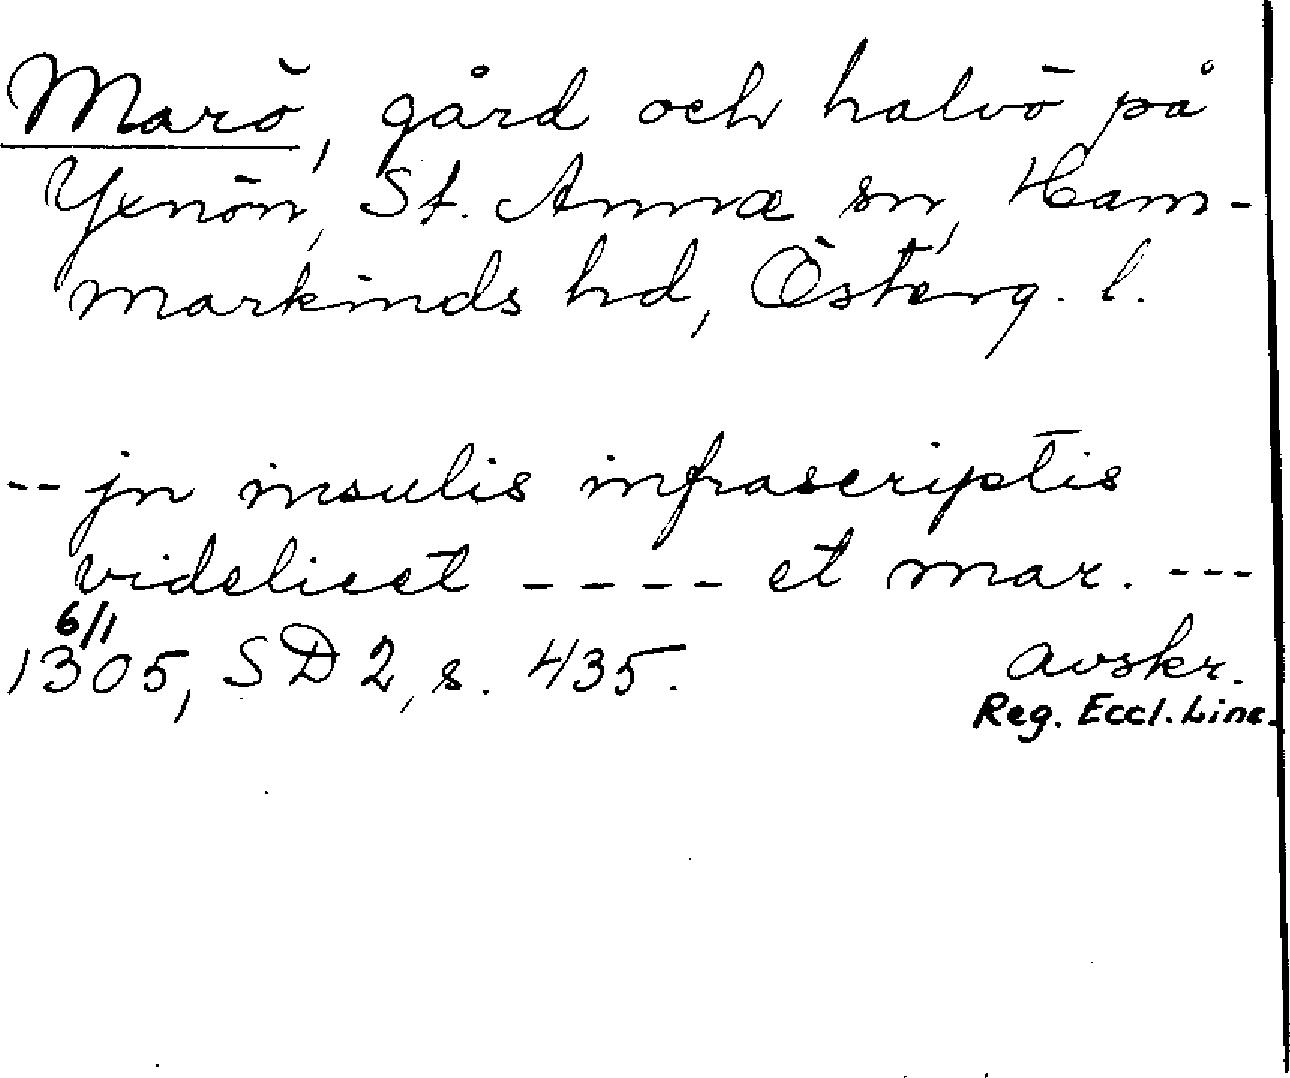 Marö, gård och halvö på
Yxnön, St. Annæ sn, Ham-
markinds hd, Österg. l.
-- jn insulis infrascriptis
videlicet ---- et mar. ---
6/1
1305, SD 2, s. 435. avskr.
Reg. Eccl. Linc.